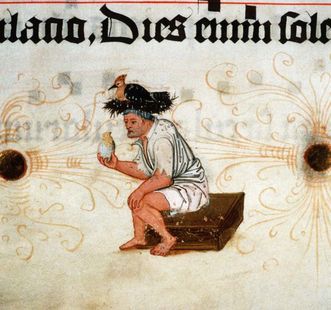 ulatio. Dies enim sole